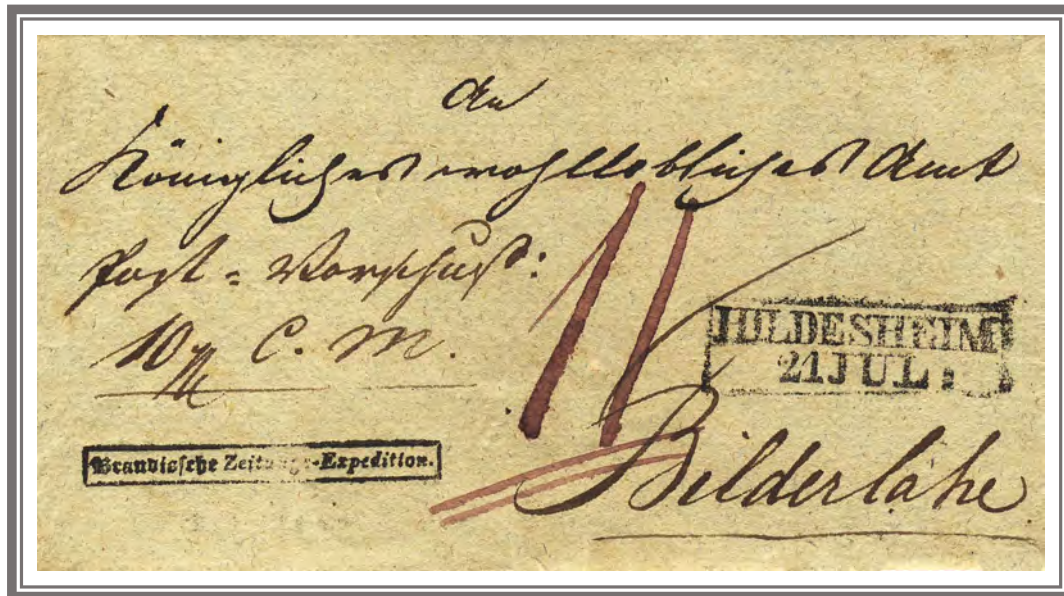 An
Königliches wohllöbliches Amt
Post-Vorschuß:
10 C. M.
11
HILDESHEIM
21 JUL
Brandissche Zeitungs-Expedition.
Bilderlahe